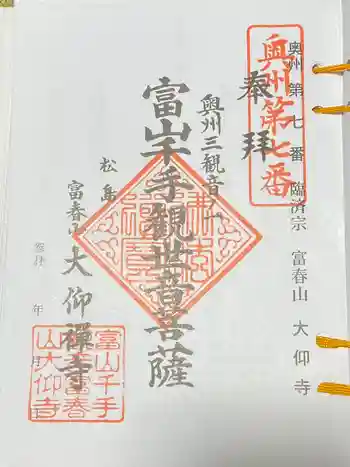 奥州 第 七 番 臨済宗 富春山 大 仰 寺
奥州第七番
奉拝
奥州三観音ノ一
富山千手観世音菩薩
松島
富春山 大仰禅寺
年 月
富山千手
富春
山大仰寺